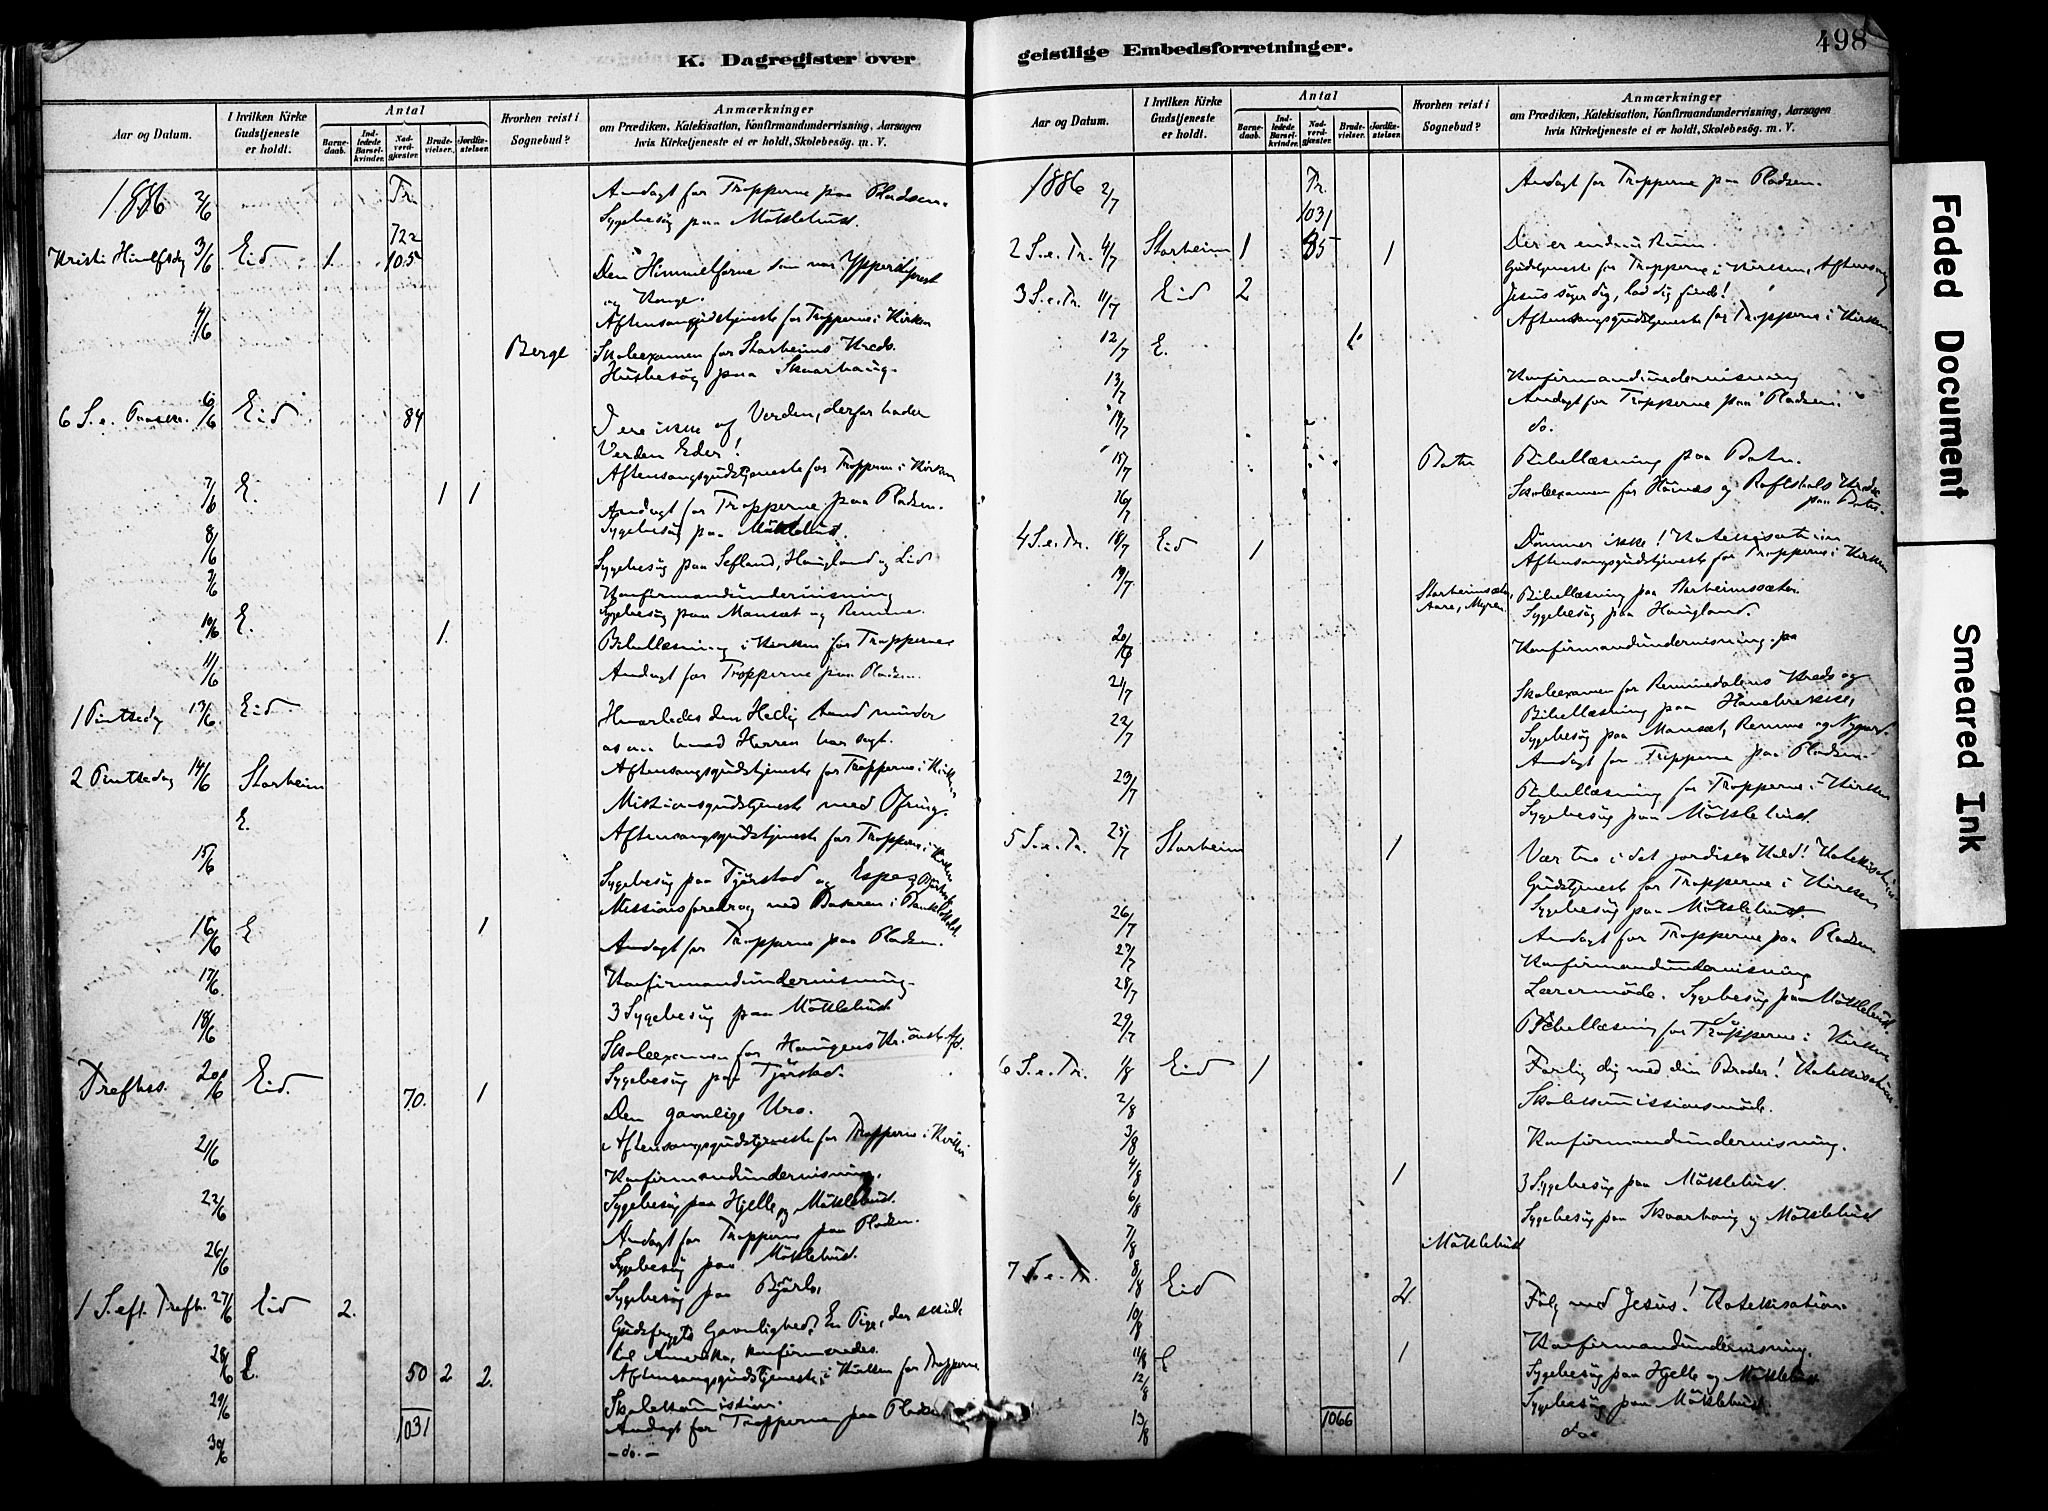 K. Dagregister over
Aar og Datum.
I hvilken Kirke Gudstjeneste er holdt.
Antal
Barnedaab.
Indledede Barselkvinder.
Nadverdgjæster.
Brudevielser.
Jordfæstelser.
Hvorhen reist i Sognebud?
Anmærkninger
om Prædiken, Katekisation, Konfirmandundervisning, Aarsagen
hvis Kirketjeneste ei er holdt, Skolebesøg. m. V.
1886 2/6 Tr. Andagt for Tropperne paa Pladsen.
722 Sygebesøg paa Möklebust.
Kristi Himlfsdag 3/6 Eid 1. 105 Den Himmelfarne som vor Ypperstprest
og Konge.
Aftensangsgudstjeneste for Tropperne i Kirken
4/6 Berge Skoleexamen for Starheims Kreds.
Husbesøg paa Skaarhaug.
6 S. e. Paaske. 6/6 Eid 84 I ere ikke af Verden, derfor hader
Verden Eder!
Aftensangsgudstjeneste for Tropperne i Kirken
7/6 E. 1 1 Andagt for Tropperne paa Pladsen.
Sygebesøg paa Möklebust.
8/6 Sygebesøg paa Sefland, Haugland og Lid
9/6 Konfirmandundervisning
Sygebesøg paa Mansæt og Remme.
10/6 E. 1. Bibellæsning i Kirken for Tropperne
11/6 Andagt for Tropperne paa Pladsen.
1 Pintsedag 13/6 Eid Hvorledes den Hellig Aand minder
os om hvad Herren har sagt.
Aftensangsgudstjeneste for Tropperne i Kirken
2 Pintsedag 14/6 Starheim Missionsgudstjeneste med Ofring.
E. Aftensangsgudstjeneste for Tropperne i Kirken
15/6 Sygebesøg paa Tjörstad og Espe
Missionsforedrag ved Basaren i
16/6 E 1 Andagt for Tropperne paa Pladsen.
17/6. Konfirmandundervisning.
3 Sygebesøg paa Möklebust
18/6 Skoleexamen for Haugens Kr.
Sygebesøg paa Tjörstad.
Trefhs. 20/6 Eid. 70. 1 Den gavnlige Uro.
Aftensangsgudstjeneste for Tropperne i Kirken
21/6 Konfirmandundervisning.
Sygebesøg paa Hjelle og Möklebust.
22/6 Andagt for Tropperne paa Pladsen.
Sygebesøg paa Möklebust.
26/6 Sygebesøg paa
1 S. eft. Trefh. 27/6 Eid 2. Gudsfrygts Gavnlighed. En Pige, der skulde
til Amerika, konfirmeredes.
Aftensangsgudstjeneste i Kirken for Tropperne
28/6 E. 50 2 2. Skolekommission.
29/6 1031 Andagt for Tropperne paa Pladsen
30/6 – do. –
geistlige Embedsforretninger.
498
Aar og Datum.
I hvilken Kirke Gudstjeneste er holdt.
Antal
Barnedaab.
Indledede Barselkvinder.
Nadverdgjæster.
Brudevielser.
Jordfæstelser.
Hvorhen reist i Sognebud?
Anmærkninger
om Prædiken, Katekisation, Konfirmandundervisning, Aarsagen
hvis Kirketjeneste ei er holdt, Skolebesøg. m. V.
1886 2/7 Tr. Andagt for Tropperne paa Pladsen.
1031
2 S. e. Tr. 4/7 Starheim 1 35 1 Der er endnu Rum.
Gudstjeneste for Tropperne i Kirken, Aftensang
3 S. e. Tr. 11/7 Eid 2 Jesus søger dig, lad dig finde!
Aftensangsgudstjeneste for Tropperne i Kirken.
12/7 E. 1.
13/7 Konfirmandundervisning
Andagt for Tropperne paa Pladsen.
14/7 do.
15/7 Bibellæsning paa
16/7 Skoleexamen for Hömes og Kreds
4 S. e. Tr. 18/7 Eid 1 Dømmer ikke! Katekisation
Aftensangsgudstjeneste for Tropperne i Kirken
19/7 Starheimsæter, Aare, Myren. Bibellæsning paa Starheimssæter
Sygebesøg paa Haugland.
20/7 Konfirmandundervisning.
21/7 Skoleexamen for Remmedalens Kreds og
Bibellæsning paa
22/7 Sygebesøg paa Mansæt, Remme og Nygaard.
Andagt for Tropperne paa Pladsen.
23/7 Bibellæsning for Tropperne i Kirken
Sygebesøg paa Möklebust.
5 S. e. Tr. 25/7 Starheim 1 Vær tro i det jordiske Kald! Katekisation
Gudstjeneste for Tropperne i Kirken
26/7 Sygebesøg paa Möklebust
27/7 Andagt for Tropperne paa Pladsen
28/7 Konfirmandundervisning
Lærermöde. Sygebesøg paa Möklebust
29/7 Bibellæsning for Tropperne i Kirken
6 S. e. Tr. 1/8 Eid 1 Forlig dig med din Broder! Katekisation.
2/8 Skolekommissionsmöde.
3/8 Konfirmandundervisning.
4/8 1 3 Sygebesøg paa Möklebust.
6/8 Sygebesøg paa Skaarhaug og Möklebust
7/8 Möklebust
7 S. e. Tr. 8/8 Eid 2. Følg med Jesus! Katekisation.
10/8 Konfirmandundervisning.
11/8 E 1
12/8 Sygebesøg paa Hjelle og Möklebust
13/8 1066 Sygebesøg paa Möklebust
do.
Faded Document
Smeared Ink